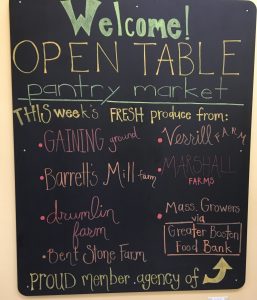 Welcome!
OPEN TABLE
pantry market
THIS week's FRESH produce from:
• GAINING ground
• Barrett's Mill farm
• drumlin farm
• Bent Stone Farm
• Verrill FARM
• MARSHALL FARMS
• Mass. Growers
via
Greater Boston
Food Bank
PROUD member agency of